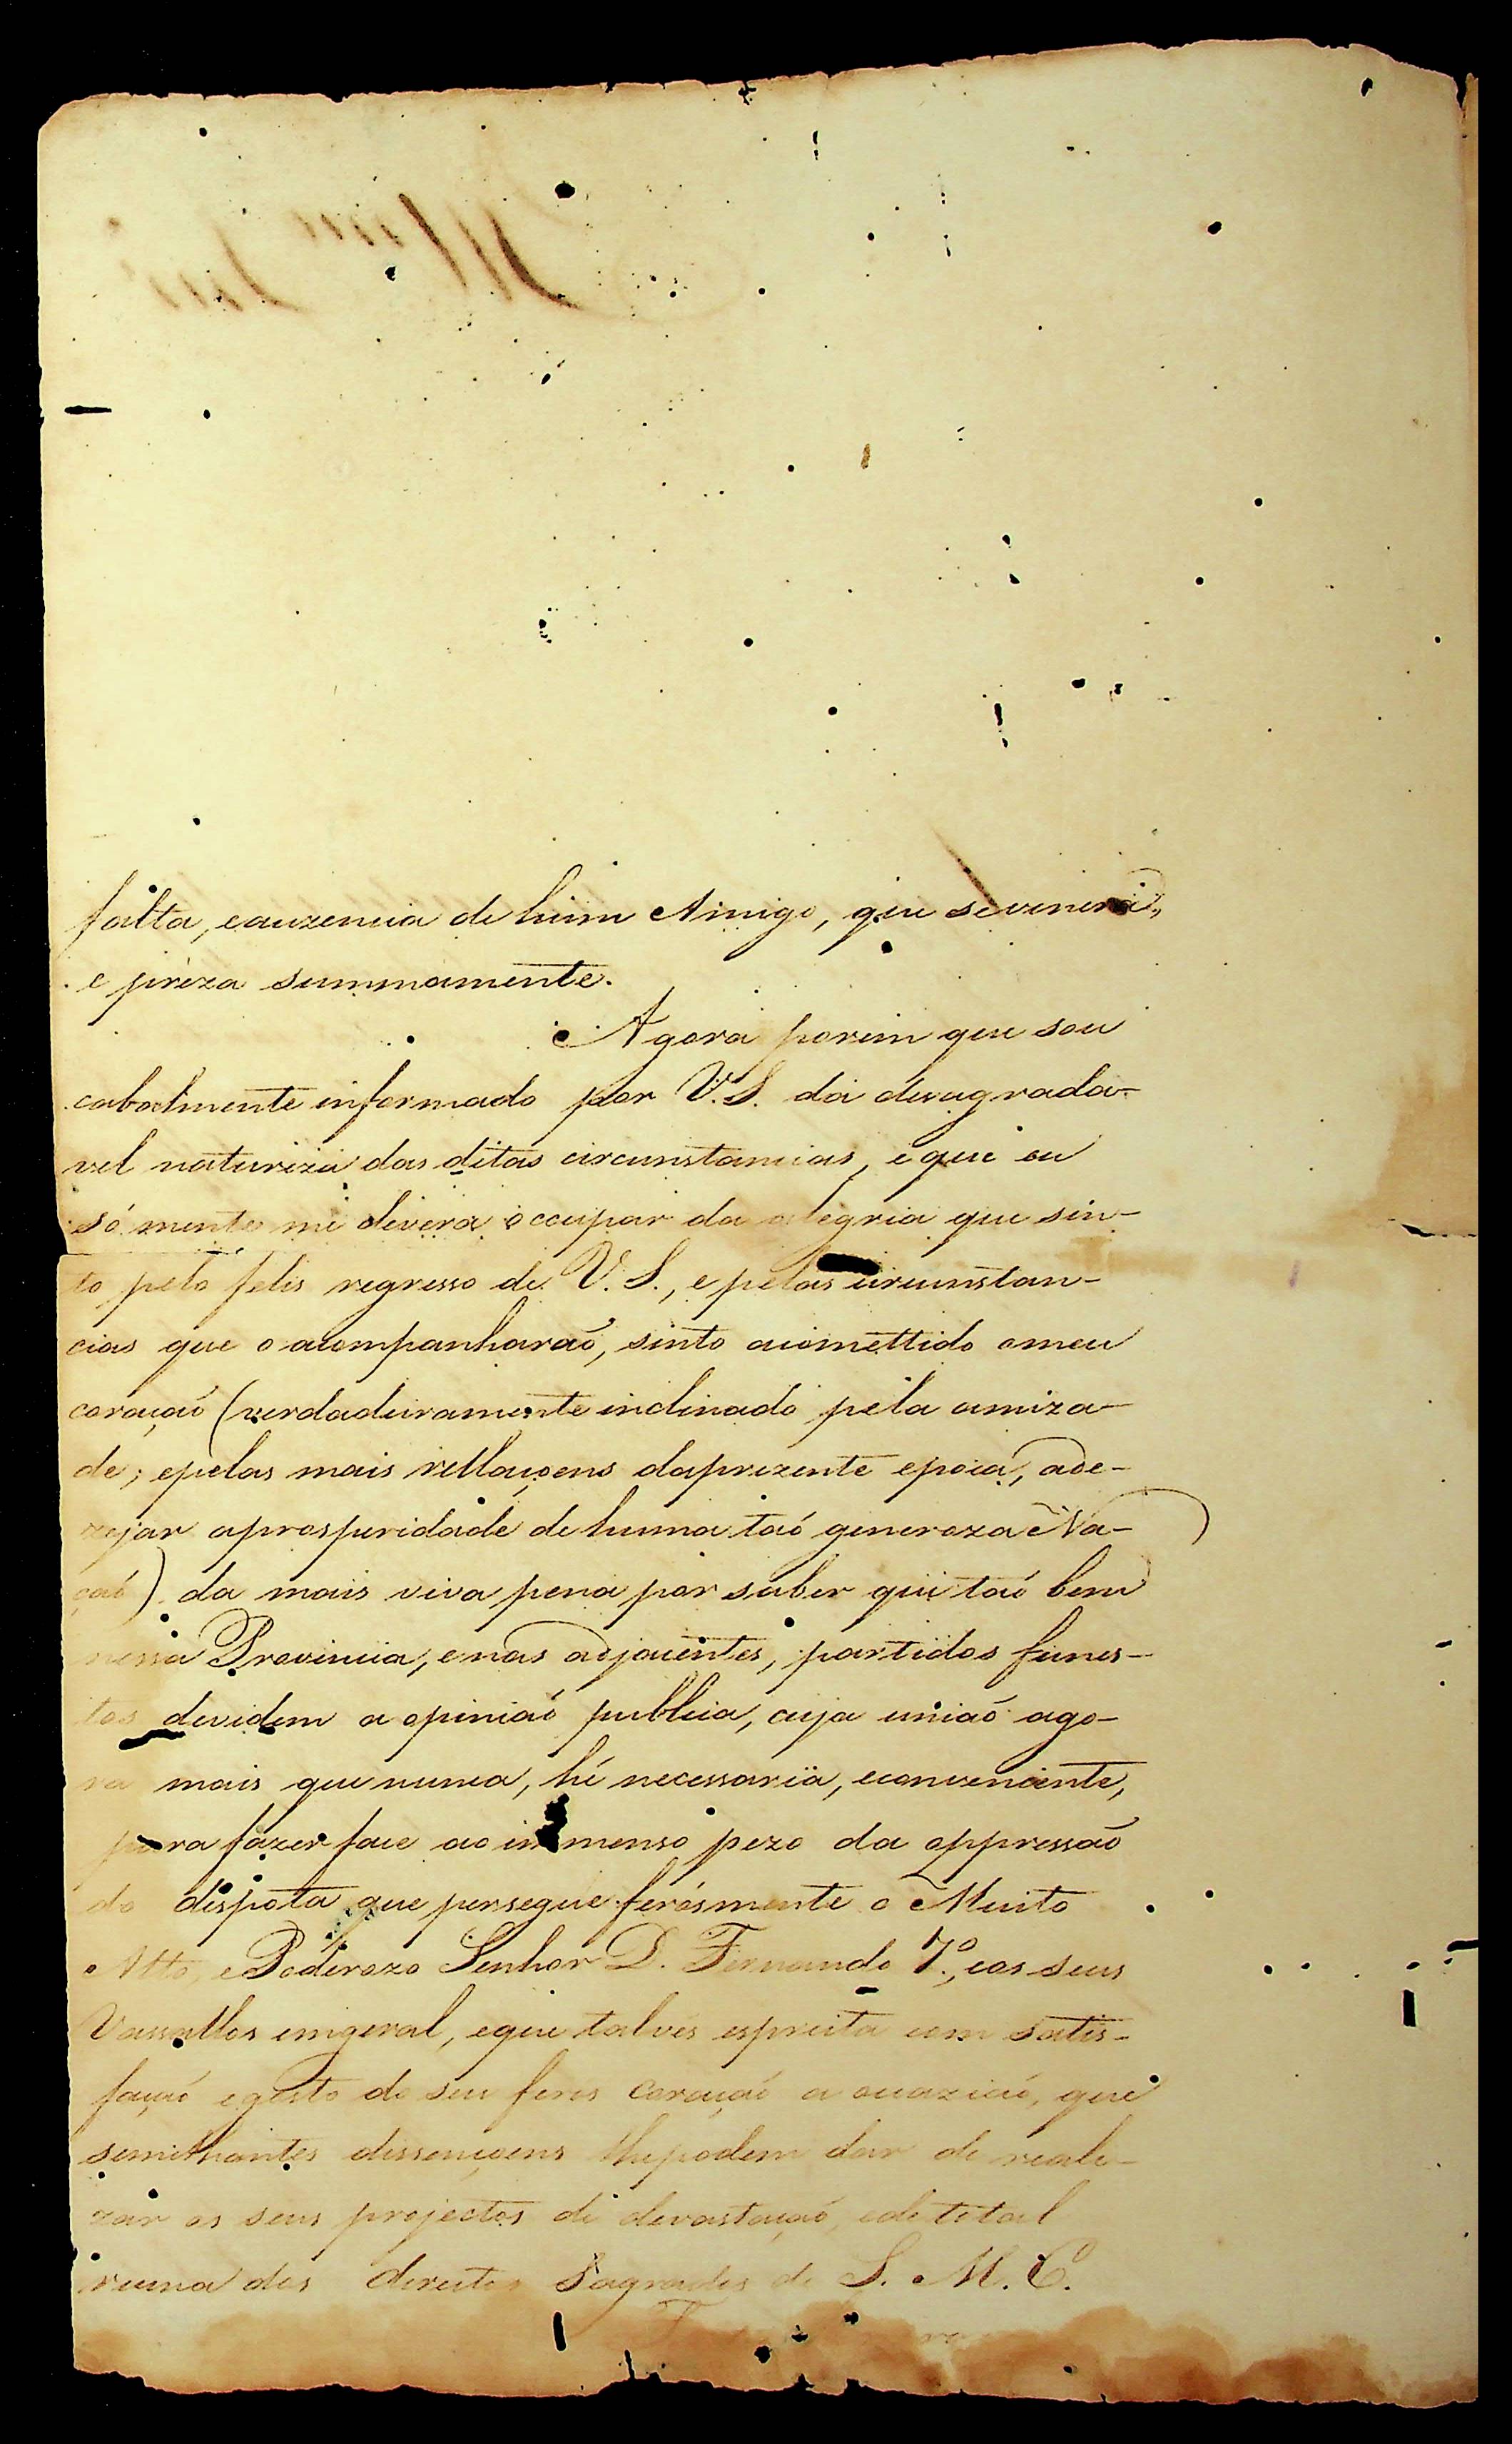 falta, eauzencia de hum Amigo, que sevenera,
e preza summamente.
Agora porem que sou
cabalmente informado por V. S. da dezagrada-
vel natureza das ditas circunstancias, e que eu
só mente me devera occupar da alegria que sin-
to pelo felis regresso de V. S., e pelas circunstan-
cias que o acompanharaõ, sinto acomettido omeu
coraçaõ (verdadeiramente inclinado pela amiza-
de, epelas mais rellaçoens daprezente epoca, ade-
zejar aprosperidade de huma taõ generoza Na-
çaõ) da mais viva pena por saber que taõ bem
nessa Provincia, enas adjacentes, partidos funes-
tos devidem a opiniaõ publica, cuja uniaõ ago-
ra mais que nunca, hé necessaria, econveniente,
para fazer face ao immenso pezo da oppressaõ
do dispota que persegue ferósmente o Muito
Alto, e Poderozo Senhor D. Fernando 7.º, eos seus
Vassallos emgeral, eque talves espreita com satis-
façaõ egosto do seu feros Coraçaõ a ouaziaõ, que
semilhantes dissençoens lhepodem dar de reali-
zar os seus projectos de devastaçaõ, ede total
ruina dos direitos Sagrados de S. M. C.